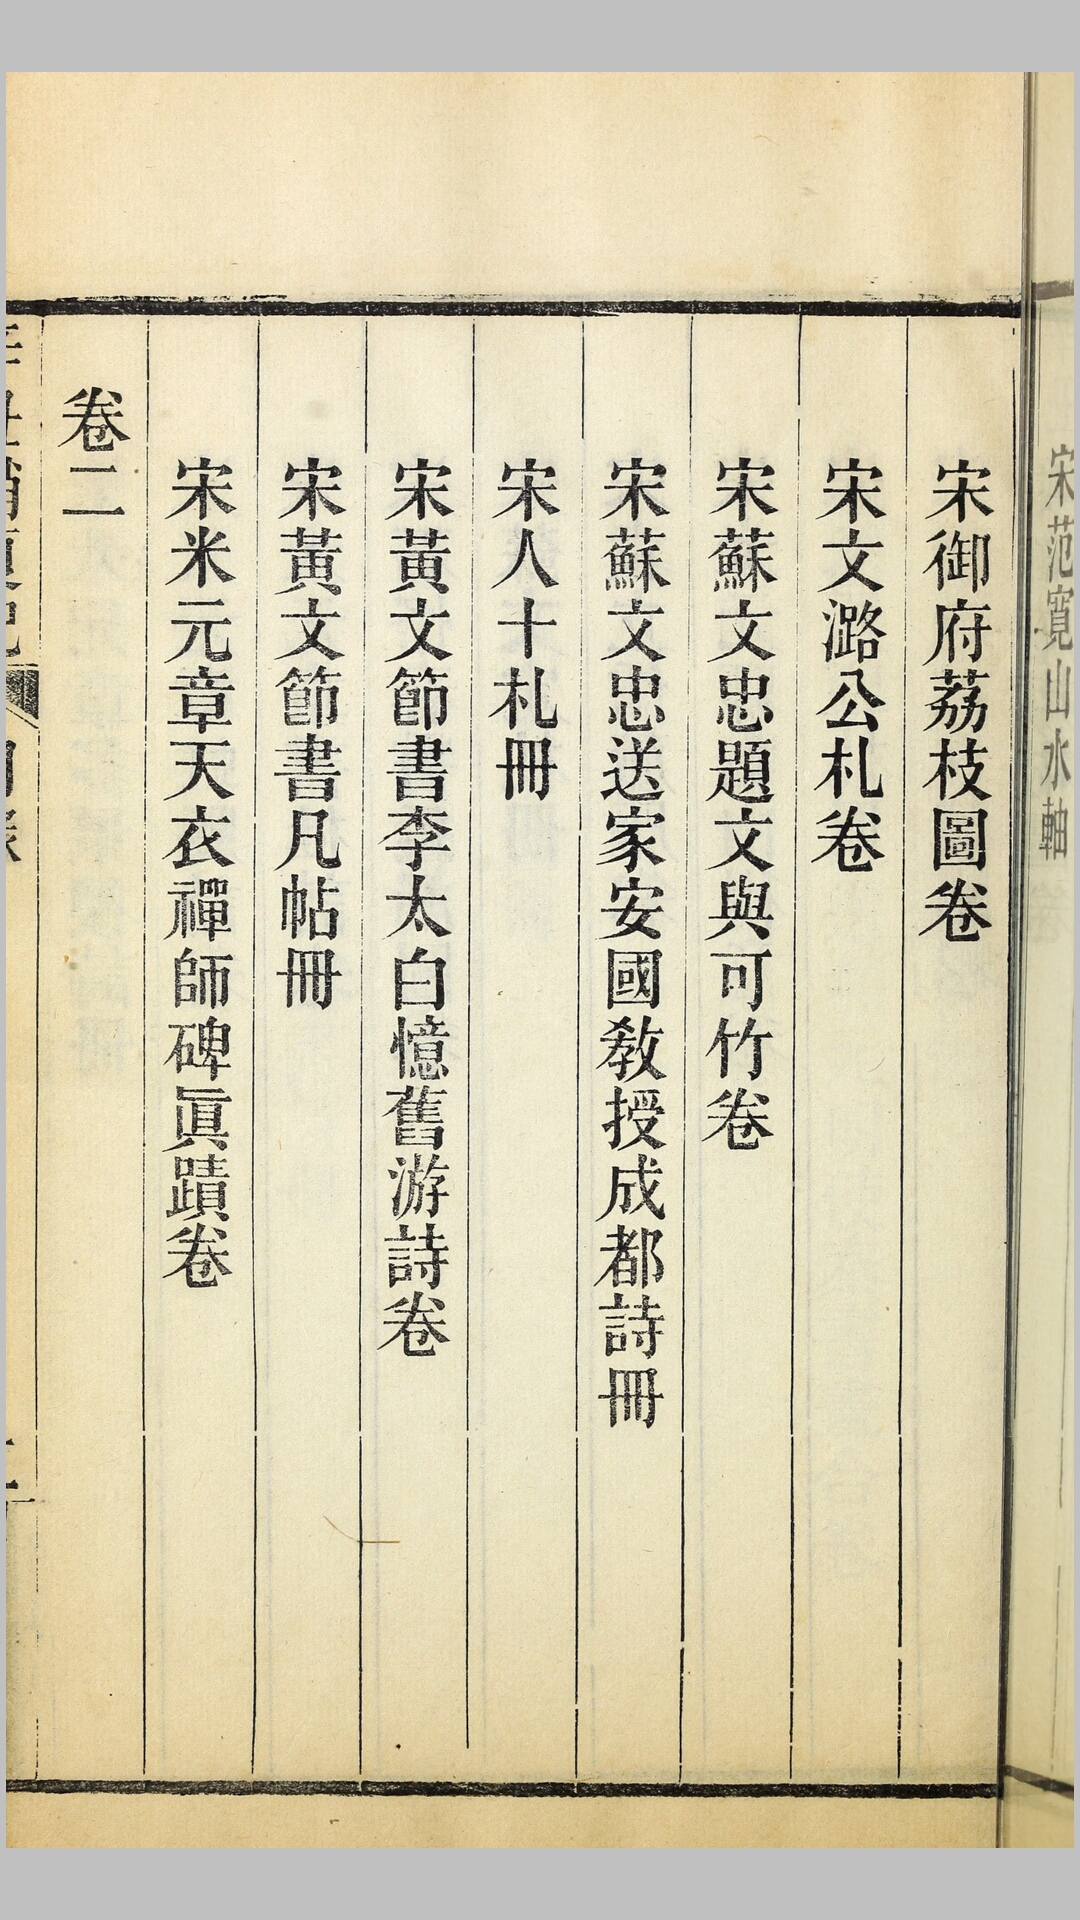 宋范寬山水軸
宋御府荔枝圖卷
宋文潞公札卷
宋蘇文忠題文與可竹卷
宋蘇文忠送家安國敎授成都詩冊
宋人十札冊
宋黃文節書李太白憶舊游詩卷
宋黃文節書凡帖冊
宋米元章天衣禪師碑眞蹟卷
卷二